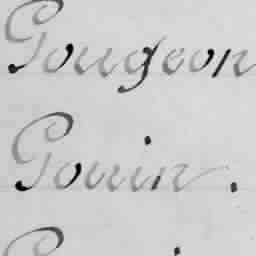 Gougeon
Gouin.